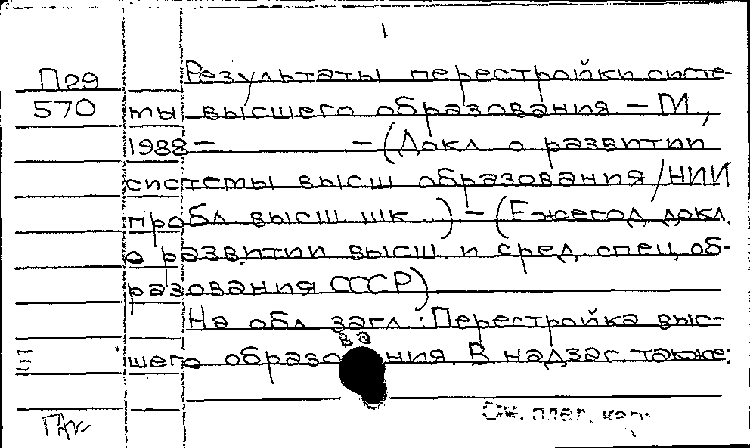 1
Пер Результаты перестройки систе-
570 мы высшего образования – М,
1988 – – (Докл о развитии
системы высш образования / НИИ
пробл высш шк..) – (Ежегод докл.
о развитии высш и сред. спец. об-
разования СССР)
На обл загл.: Перестройка выс-
шего образования. В надзаг также:
См. след. карт.